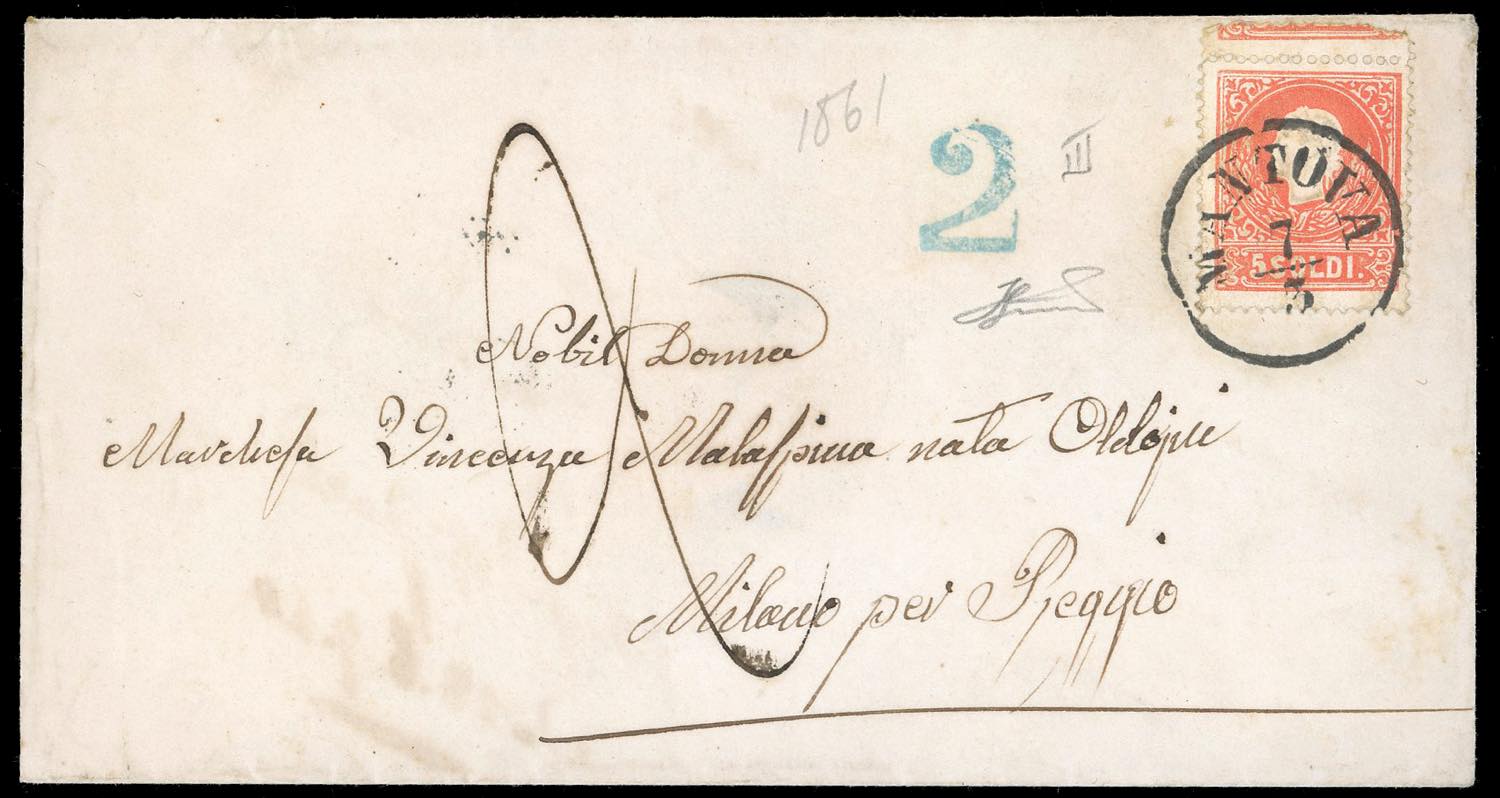 1861
2 II
MANTOVA
7/5
5 SOLDI.
Nobil Donna
Marchesa Vincenza Malaspina nata Oldoini
Milano per Reggio